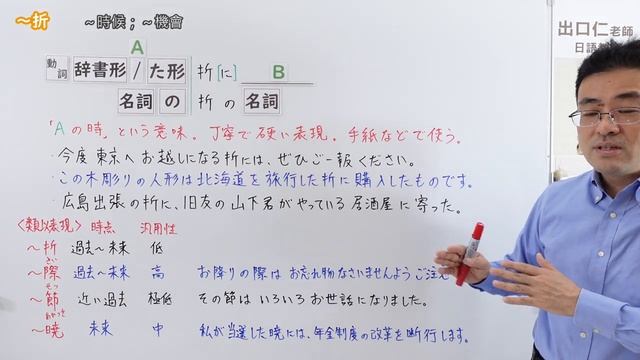 ～折 ～時候；～機會
出口仁老師
日語
A
動詞 辞書形 / た形 折[に] B
名詞 の 折 の 名詞
「Aの時」という意味。丁寧で硬い表現。手紙などで使う。
・今度東京へお越しになる折には、ぜひご一報ください。
・この木彫りの人形は北海道を旅行した折に購入したものです。
・広島出張の折に、旧友の山下君がやっている居酒屋に寄った。
〈類似表現〉 時点 汎用性
～折 過去～未来 低
さい
～際 過去～未来 高 お降りの際はお忘れ物なさいませんようご注
せつ
～節 近い過去 極低 その節はいろいろお世話になりました。
あかつき
～暁 未来 中 私が当選した暁には、年金制度の改革を断行します。